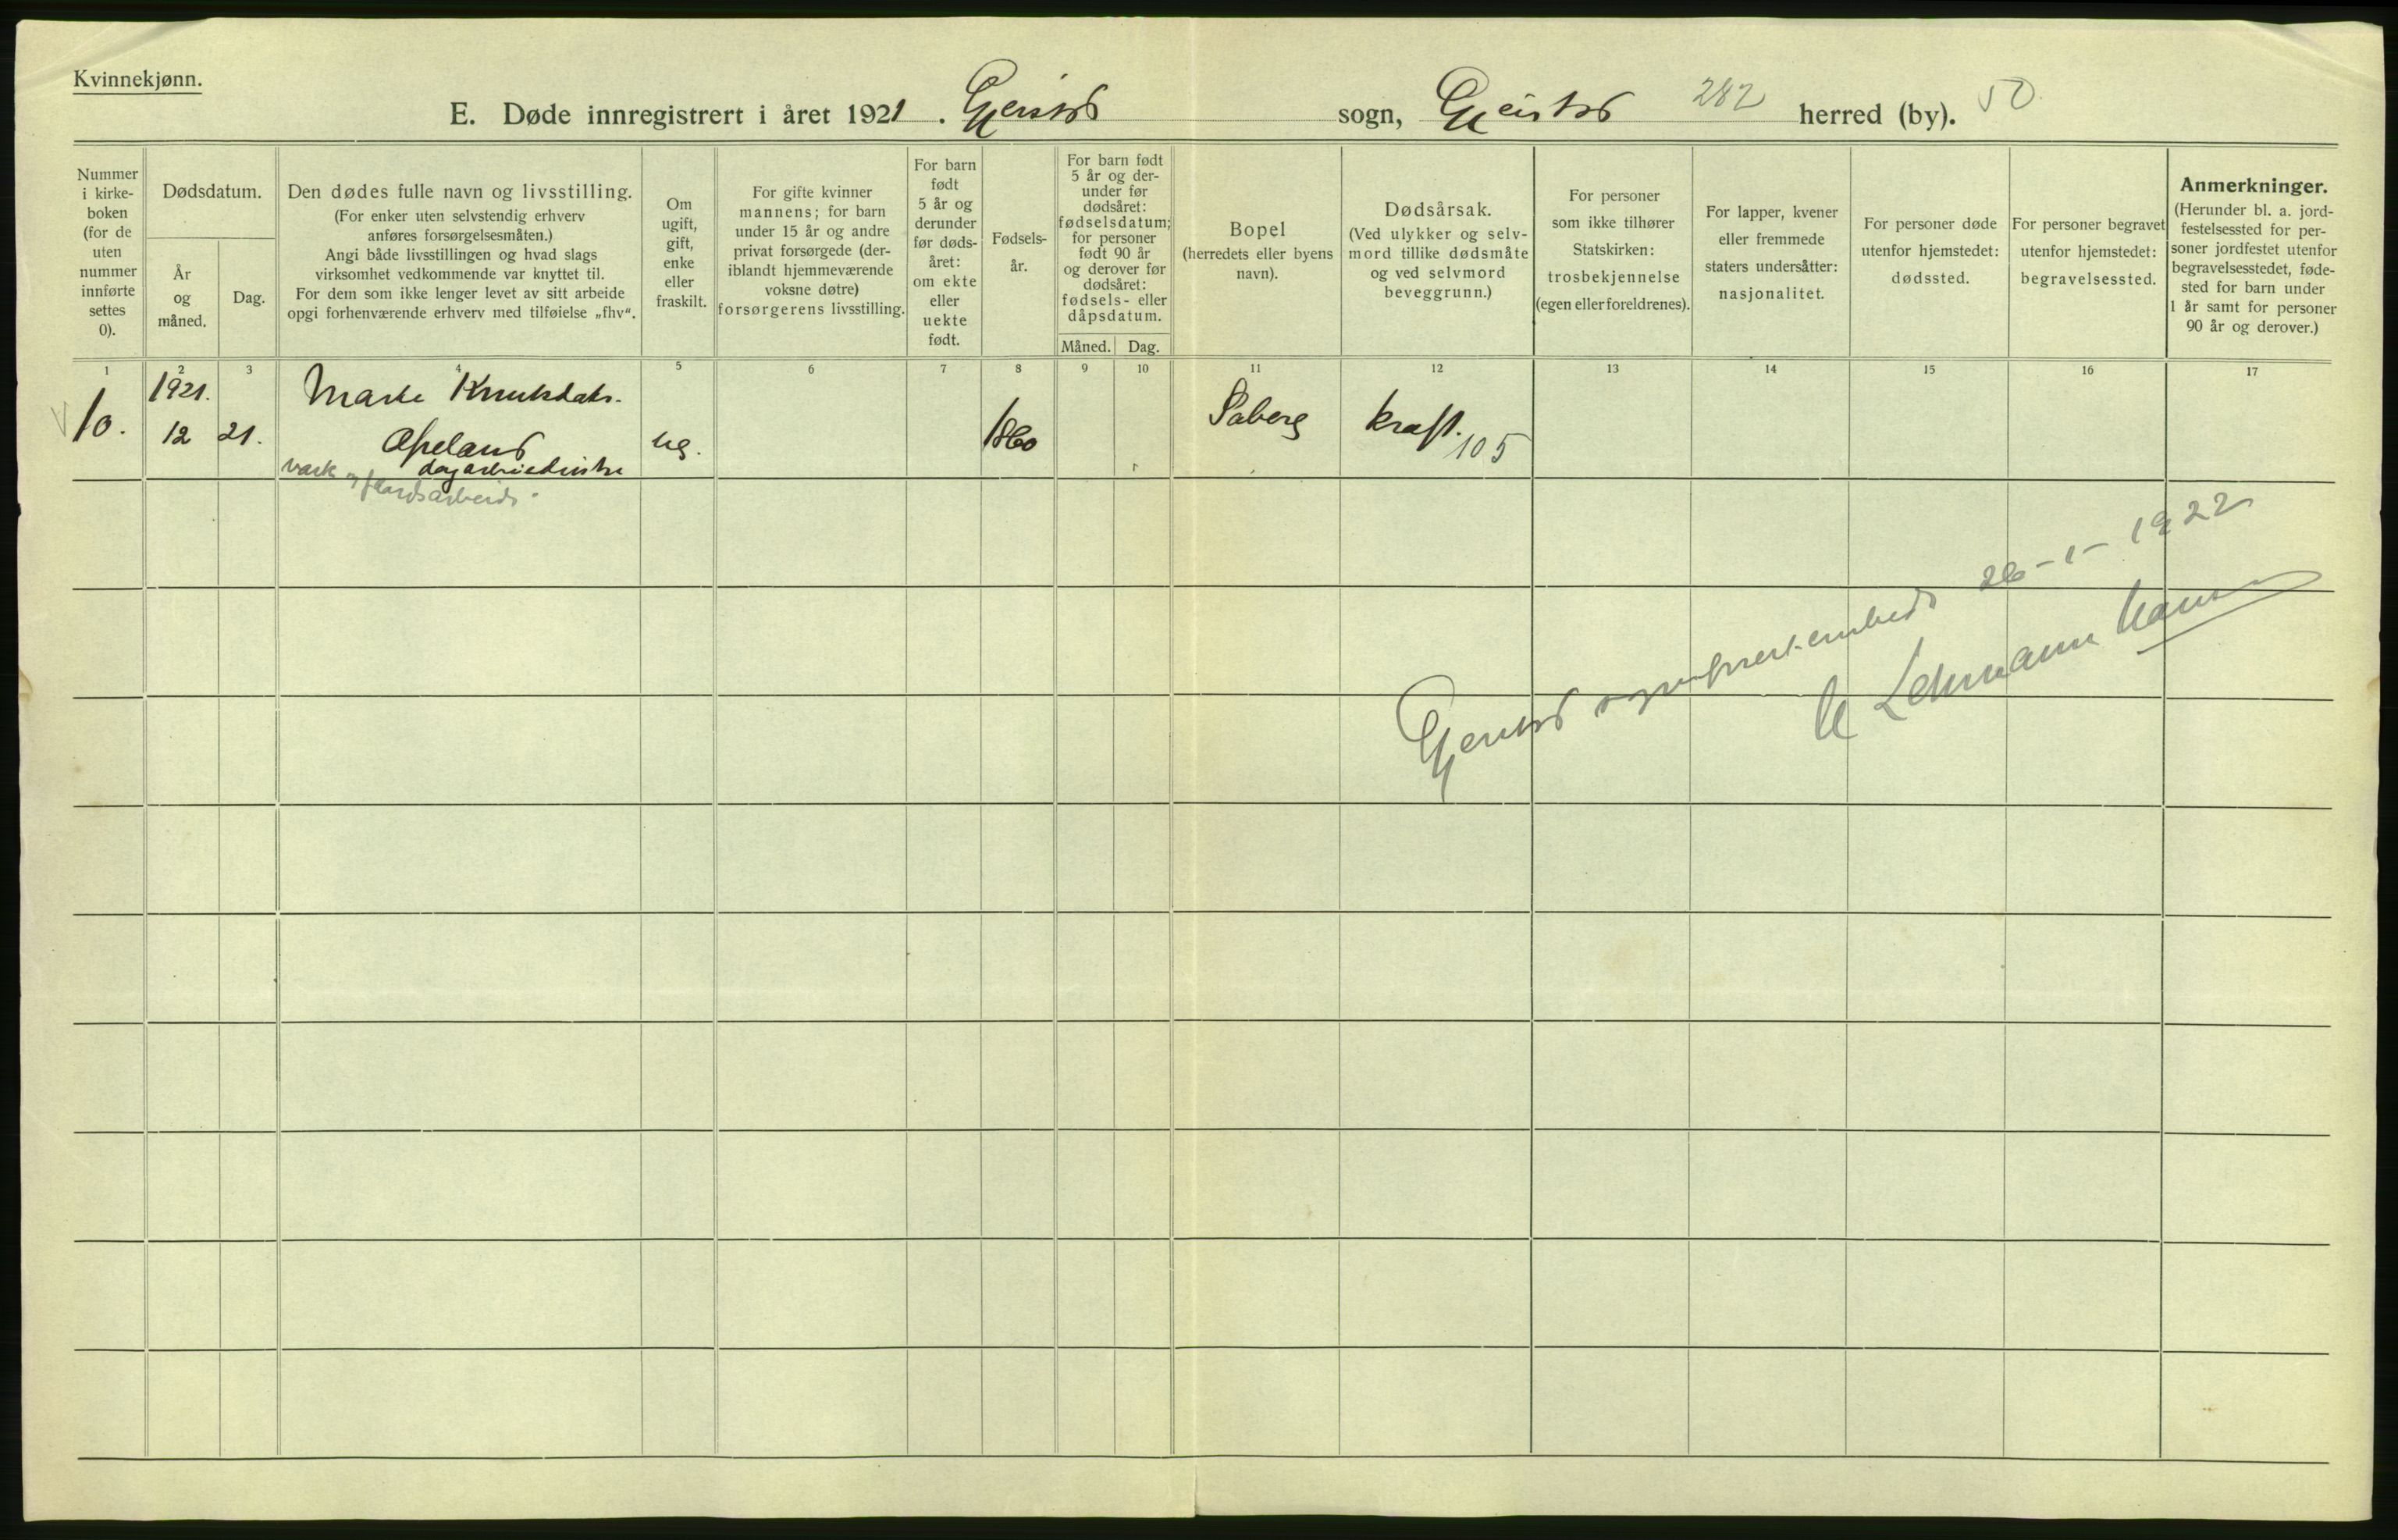 Kvinnekjønn.
E. Døde innregistrert i året 1921. Gjerstad sogn, Gjerstad 282 herred (by). 50
Nummer i kirke-boken (for de uten nummer innførte settes 0).
Dødsdatum.
År og måned.
Dag.
Den dødes fulle navn og livsstilling.
(For enker uten selvstendig erhverv
anføres forsørgelsesmåten.)
Angi både livsstillingen og hvad slags
virksomhet vedkommende var knyttet til.
For dem som ikke lenger levet av sitt arbeide
opgi forhenværende erhverv med tilføielse „fhv“.
Om
ugift,
gift,
enke
eller
fraskilt.
For gifte kvinner
mannens; for barn
under 15 år og andre
privat forsørgede (der-
iblandt hjemmeværende
voksne døtre)
forsørgerens livsstilling.
For barn
født
5 år og
derunder
før døds-
året:
om ekte
eller
uekte
født.
Fødsels-
år.
For barn født
5 år og der-
under før
dødsåret:
fødselsdatum;
for personer
født 90 år
og derover før
dødsåret:
fødsels- eller
dåpsdatum.
Måned. Dag.
Bopel
(herredets eller byens
navn).
Dødsårsak.
(Ved ulykker og selv-
mord tillike dødsmåte
og ved selvmord
beveggrunn.)
For personer
som ikke tilhører
Statskirken:
trosbekjennelse
(egen eller foreldrenes).
For lapper, kvener
eller fremmede
staters undersåtter:
nasjonalitet.
For personer døde
utenfor hjemstedet:
dødssted.
For personer begravet
utenfor hjemstedet:
begravelsessted.
Anmerkninger.
(Herunder bl. a. jord-
festelsessted for per-
soner jordfestet utenfor
begravelsesstedet, føde-
sted for barn under
1 år samt for personer
90 år og derover.)
1 2 3 4 5 6 7 8 9 10 11 12 13 14 15 16 17
1921. Marte Knutsdatr.
10. 12 21. Apeland ug. 1860 Søberg kraft. 105
vask dagarbeiderske
og gårdsarbeide.
Gjerstad sogneprestembede 26-1-1922
Lehmann Hansen